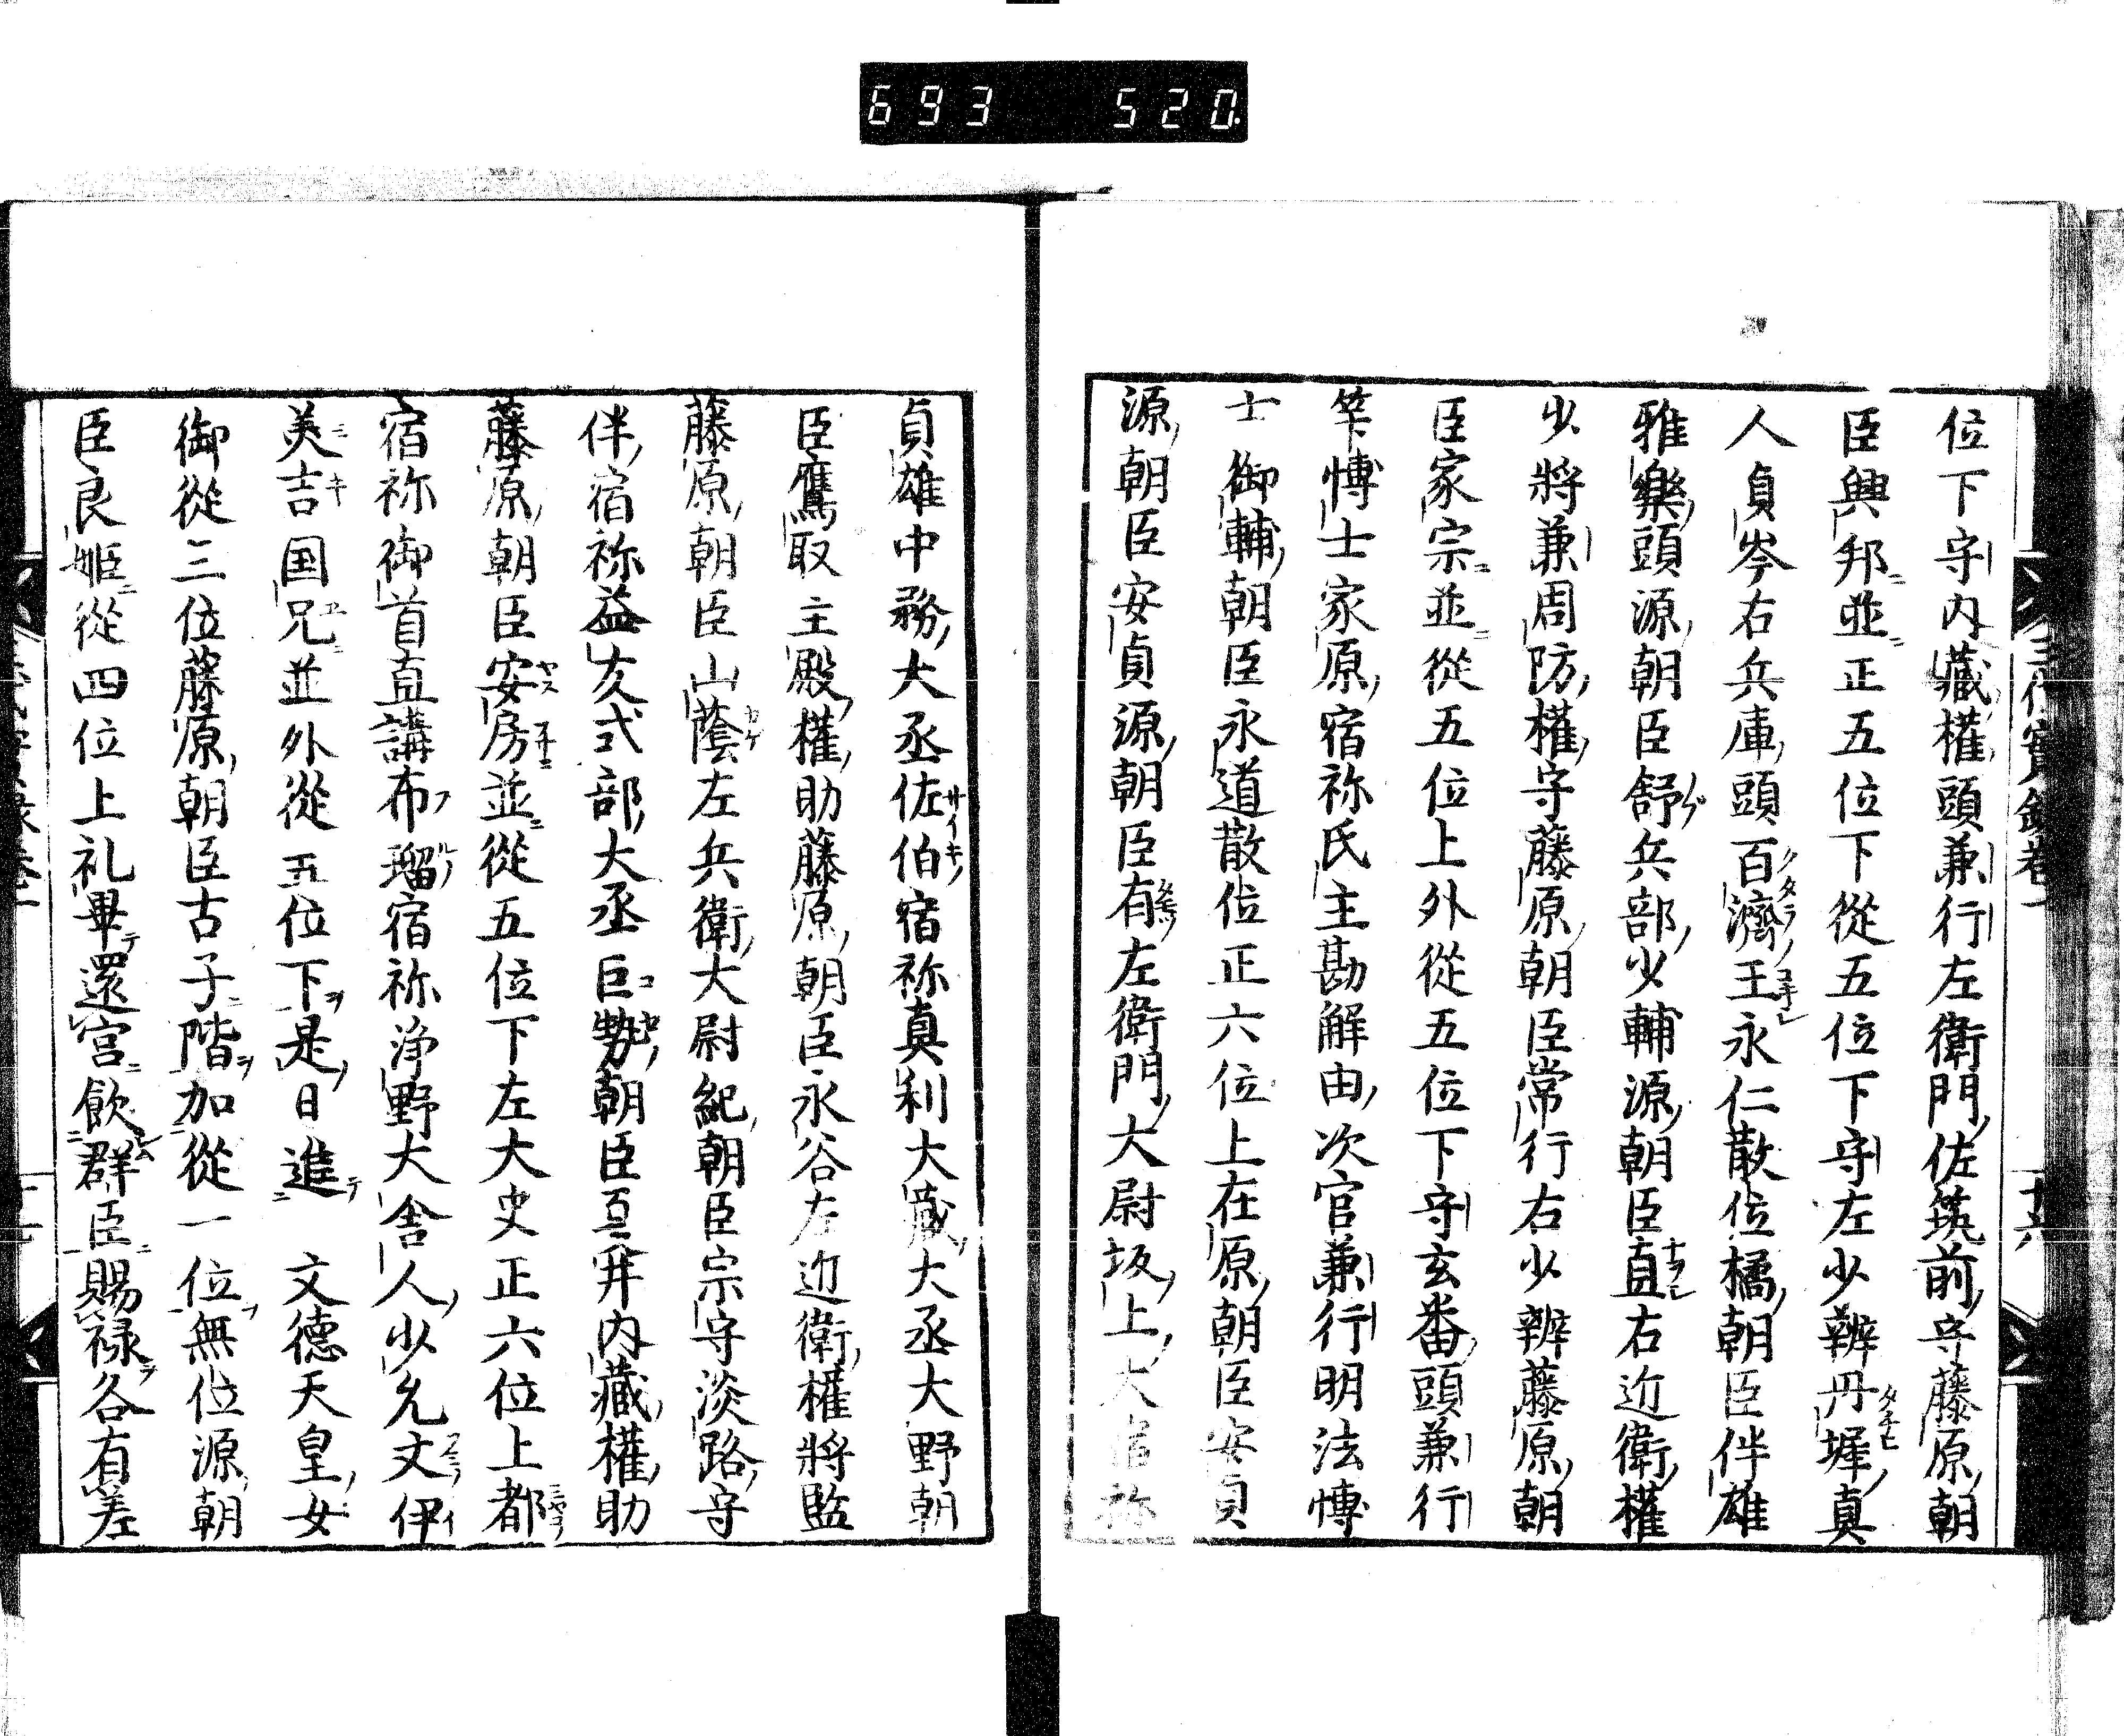 693 520
位下守内藏權頭兼行左衛門佐筑前守藤原朝
臣興邦並正五位下從五位下守左少辨丹墀真
人貞岑右兵庫頭百濟王永仁散位橘朝臣伴雄
雅樂頭源朝臣舒兵部少輔源朝臣直右近衛權
少將兼周防權守藤原朝臣常行右少辨藤原朝
臣家宗並從五位上外從五位下守玄番頭兼行
竿博士家原宿祢氏主勘解由次官兼行明法博
士御輔朝臣永道散位正六位上在原朝臣安貞
源朝臣安貞源朝臣有左衛門大尉坂上大宿祢
貞雄中務大丞佐伯宿祢真利大藏大丞大野朝
臣鷹取主殿權助藤原朝臣永谷左近衛權將監
藤原朝臣山蔭左兵衛大尉紀朝臣宗守淡路守
伴宿祢益友式部大丞巨勢朝臣亘井内藏權助
藤原朝臣安房並從五位下左大史正六位上都
宿祢御酋直講布瑠宿祢浄野大舎人少允丈伊
美吉国兄並外從五位下是日進 文德天皇女
御從三位藤原朝臣古子階加從一位無位源朝
臣良姫從四位上礼畢還宮飲群臣賜禄各有差